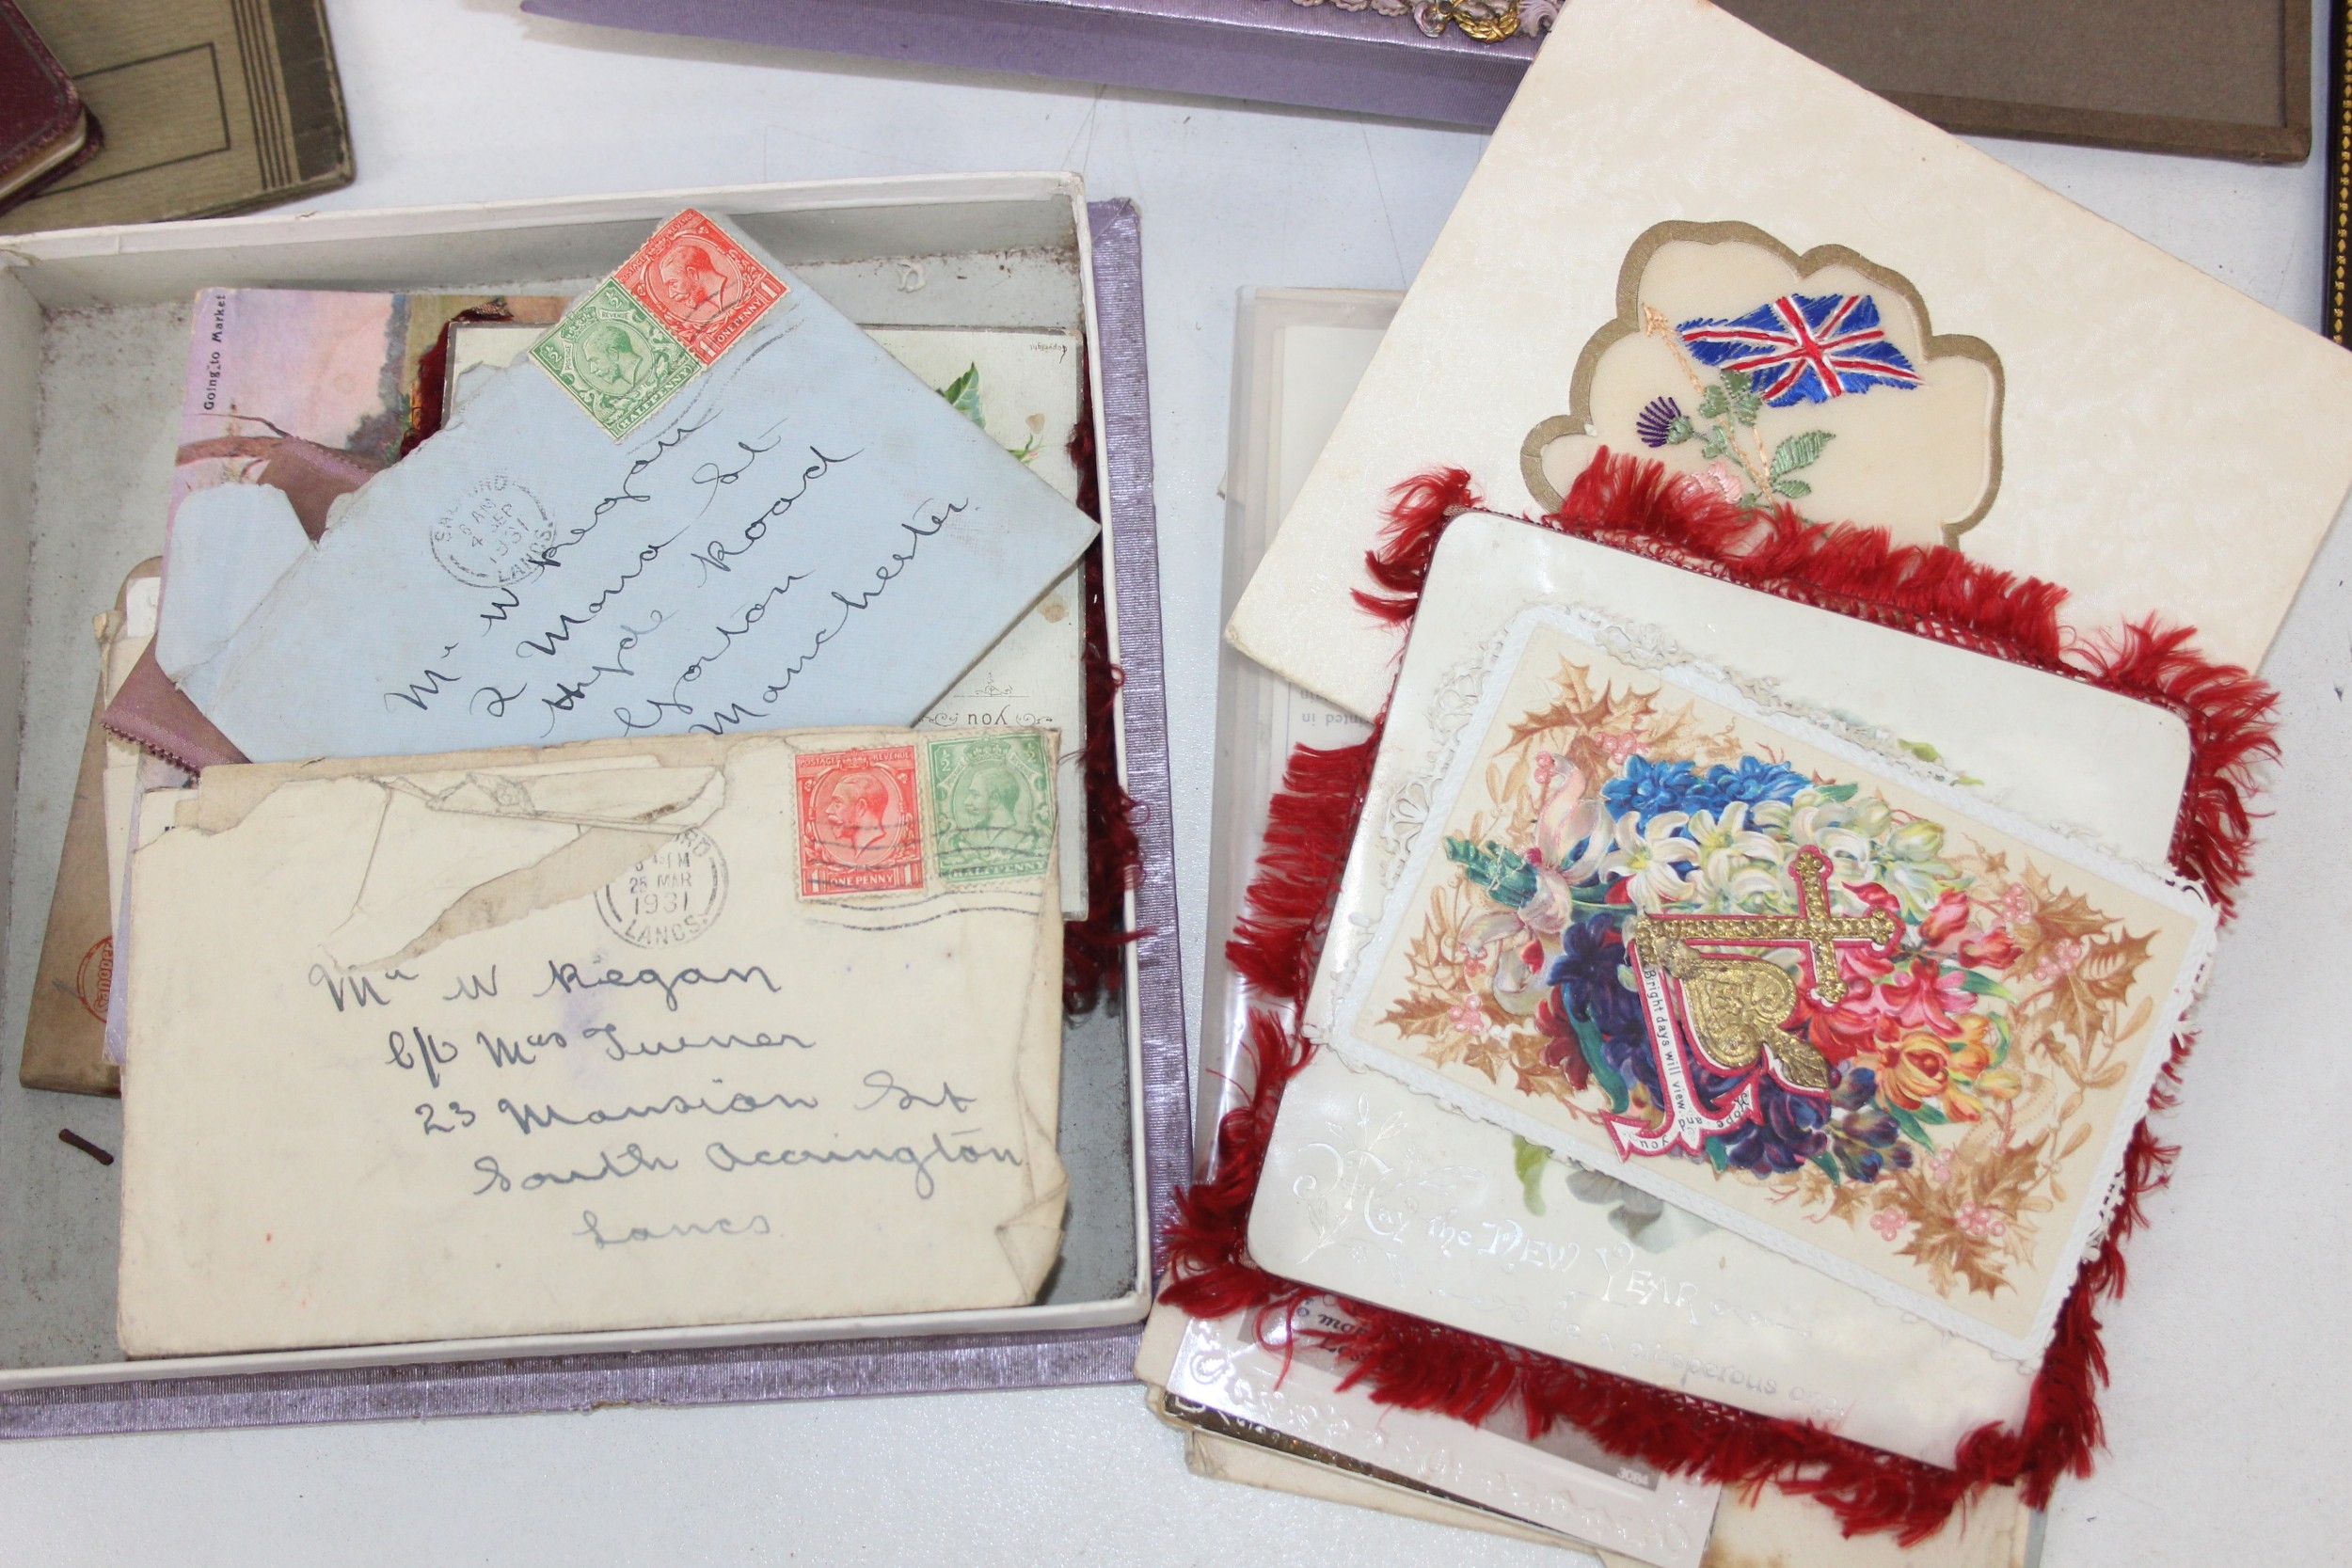 Going to Market
POSTAGE REVENUE
ONE PENNY
HALFPENNY
8 AM
4 SEP
1931
LANCS.
Mr W Regan
2 Mona St
Hyde Road
Gorton
Manchester.
you
POSTAGE REVENUE
ONE PENNY
28 MAR
1931
LANCS.
Mr W Regan
c/o Mrs Turner
23 Mansion St
South Accrington
Lancs
Bright days will view
and
Hope
you
May the NEW YEAR
be a prosperous one
3084